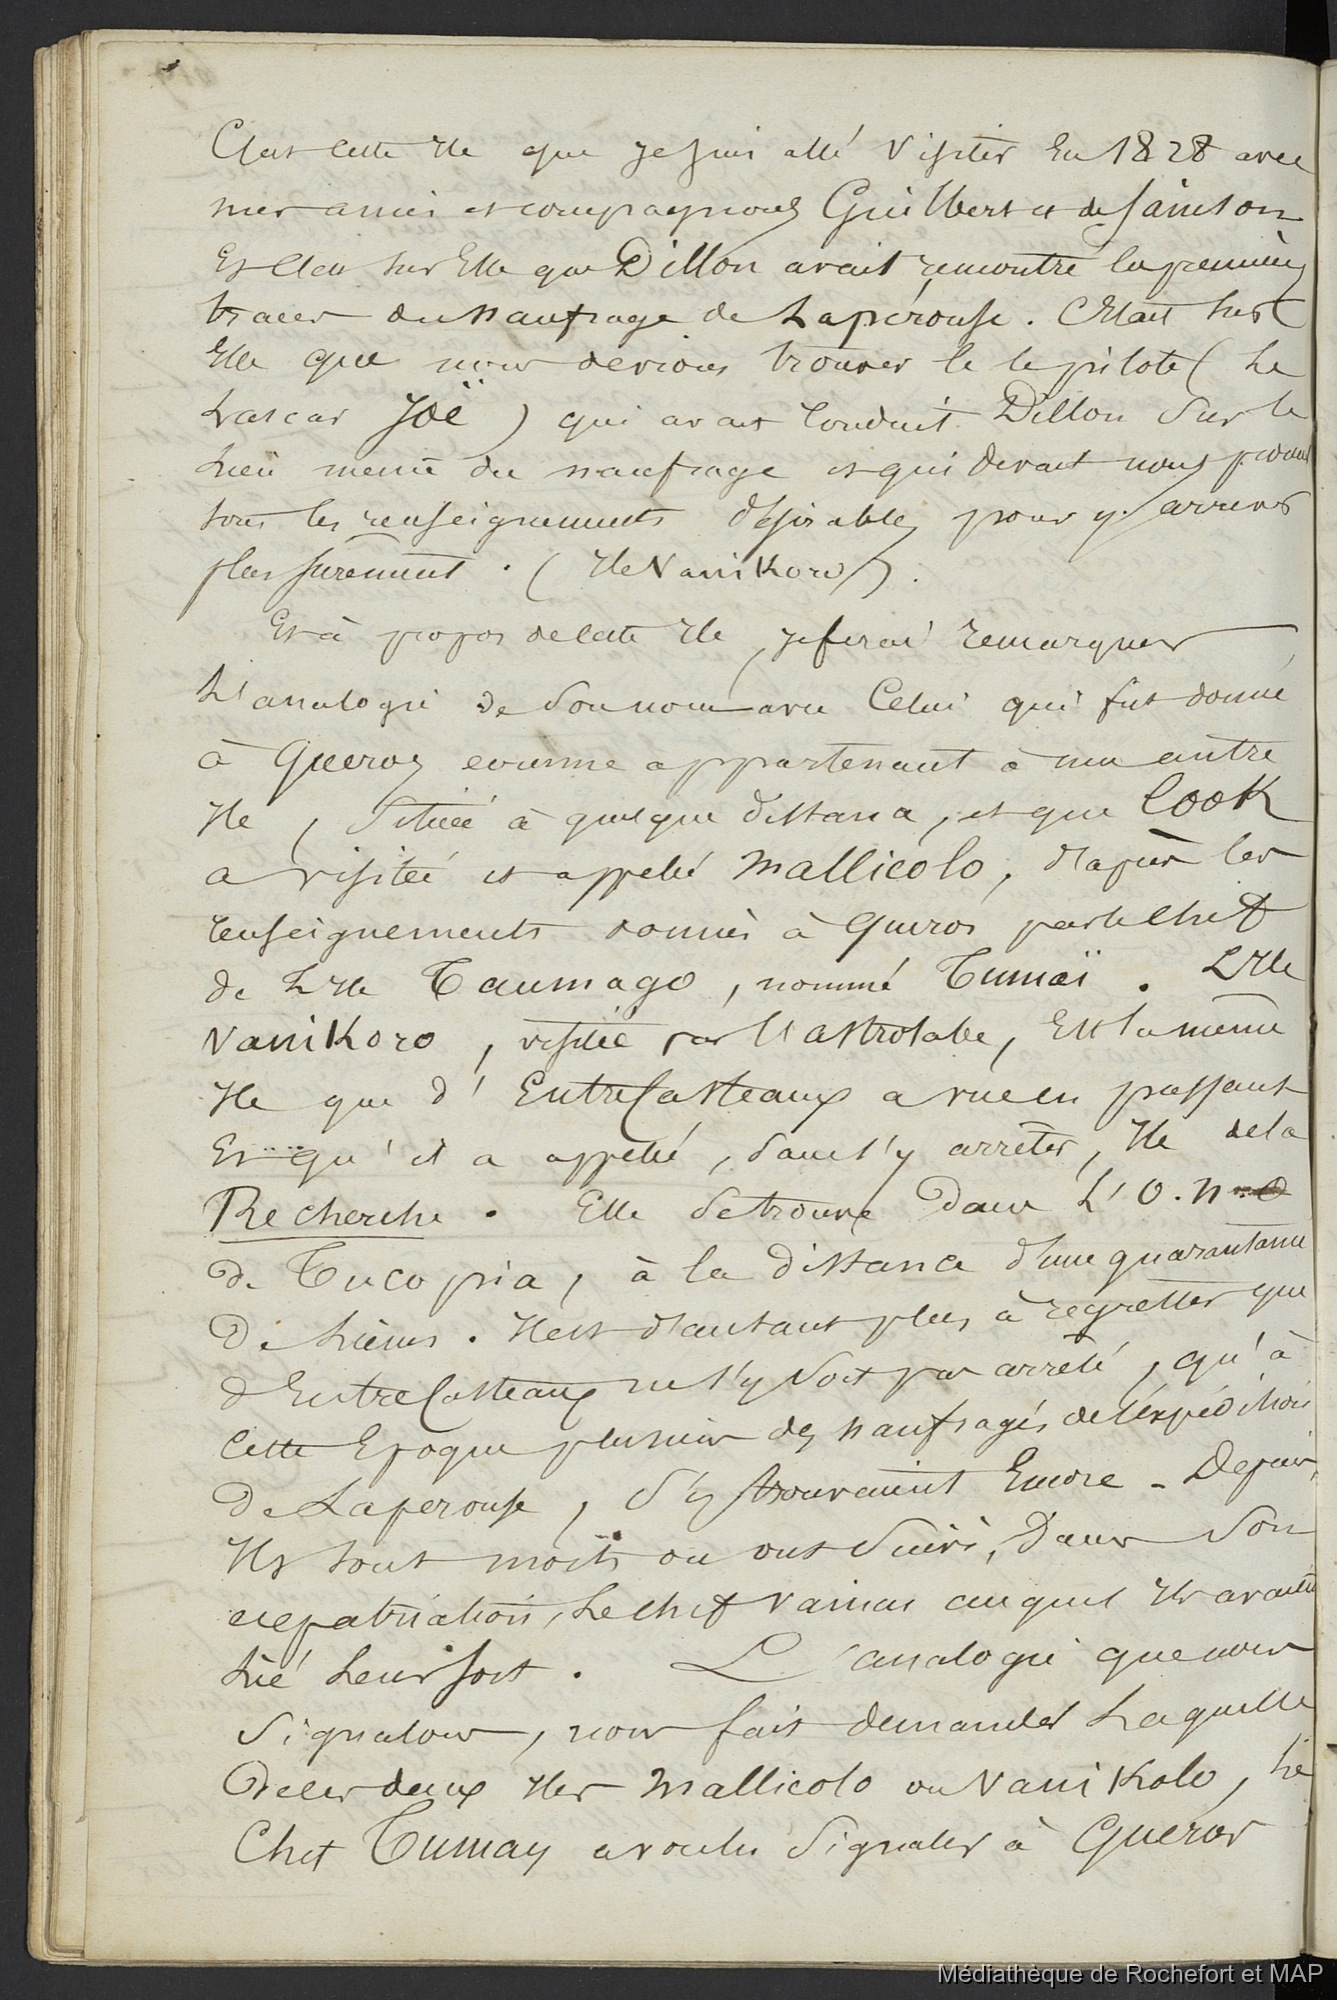 C'est cette Ile que je suis allé visiter En 1828 avec
mes amis et compagnons Guilbert et de Sainson.
Et c'est sur Elle que Dillon avait rencontré les premières
traces du naufrage de Lapérouse. C'était sur
Elle que nous devions trouver le le pilote (Le
Lascar Joë) qui avait Conduit Dillon Sur le
Lieu même du naufrage et qui devait nous
tous les renseignements désirables pour y arriver
plus surement. (Ile Vanikoro).
Et à propos de cette Ile, je ferai remarquer
L'analogie de Son nom avec Celui qui fut donné
à Queros comme appartenant à une autre
Ile, Située à quelque distance, et que Cook
a visitée et appelé Mallicolo, d'après les
renseignements donnés à Quiros par le Chef
de L'Ile Taumago, nommé Tumaï. L'Ile
Vanikoro, visitée par l'Astrolabe, Est la même
Ile que d'EntreCasteaux a vue en passant
Et qu'il a appelé, Sans s'y arrêter, Ile de la
Recherche. Elle Se trouve Dans L'O.N.O
De Tucopia, à la Distance d'une quarantaine
De Lieues. Il est d'autant plus à regretter que
d'EntreCasteaux ne s'y Soit pas arrêté, qu'à
Cette Epoque plusieurs des naufragés de l'expédition
De Laperouse, S'y trouvaient Encore - Depuis,
Ils sont morts ou ont Suivi, Dans Son
expatriation, Le chef Vainau auquel Ils avaient
Lié Leur sort. L'analogie que nous
Signalons, nous fait demander Laquelle
De ces deux Iles Mallicolo ou Vanikolo, Le
Chef Tumay a voulu Signaler à Queros
Médiathèque de Rochefort et MAP